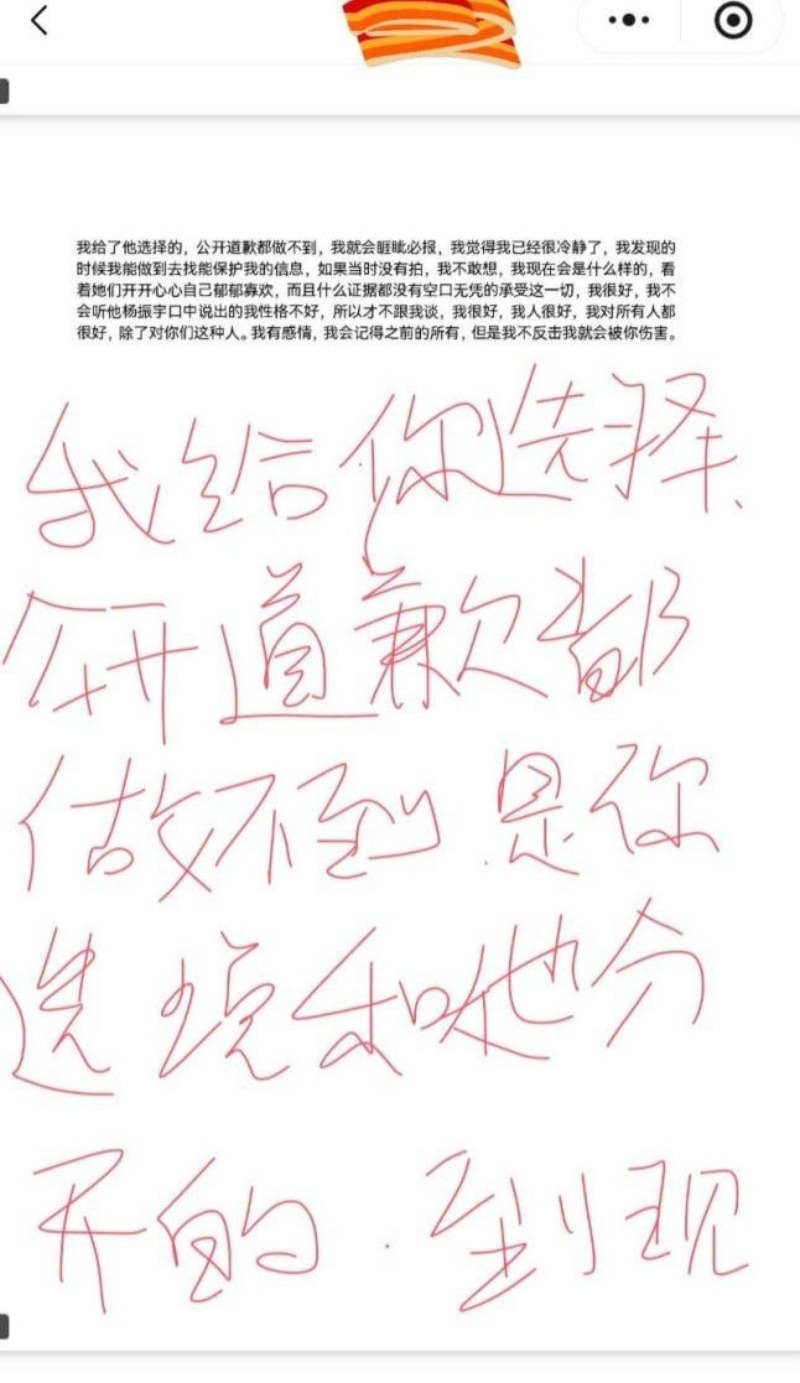 我给了他选择的，公开道歉都做不到，我就会睚眦必报，我觉得我已经很冷静了，我发现的
时候我能做到去找能保护我的信息，如果当时没有拍，我不敢想，我现在会是什么样的，看
着她们开开心心自己郁郁寡欢，而且什么证据都没有空口无凭的承受这一切，我很好，我不
会听他杨振宇口中说出的我性格不好，所以才不跟我谈，我很好，我人很好，我对所有人都
很好，除了对你们这种人。我有感情，我会记得之前的所有，但是我不反击我就会被你伤害。
我给你选择、
公开道歉都
做不到.是你
选 说和他分
开的.到现